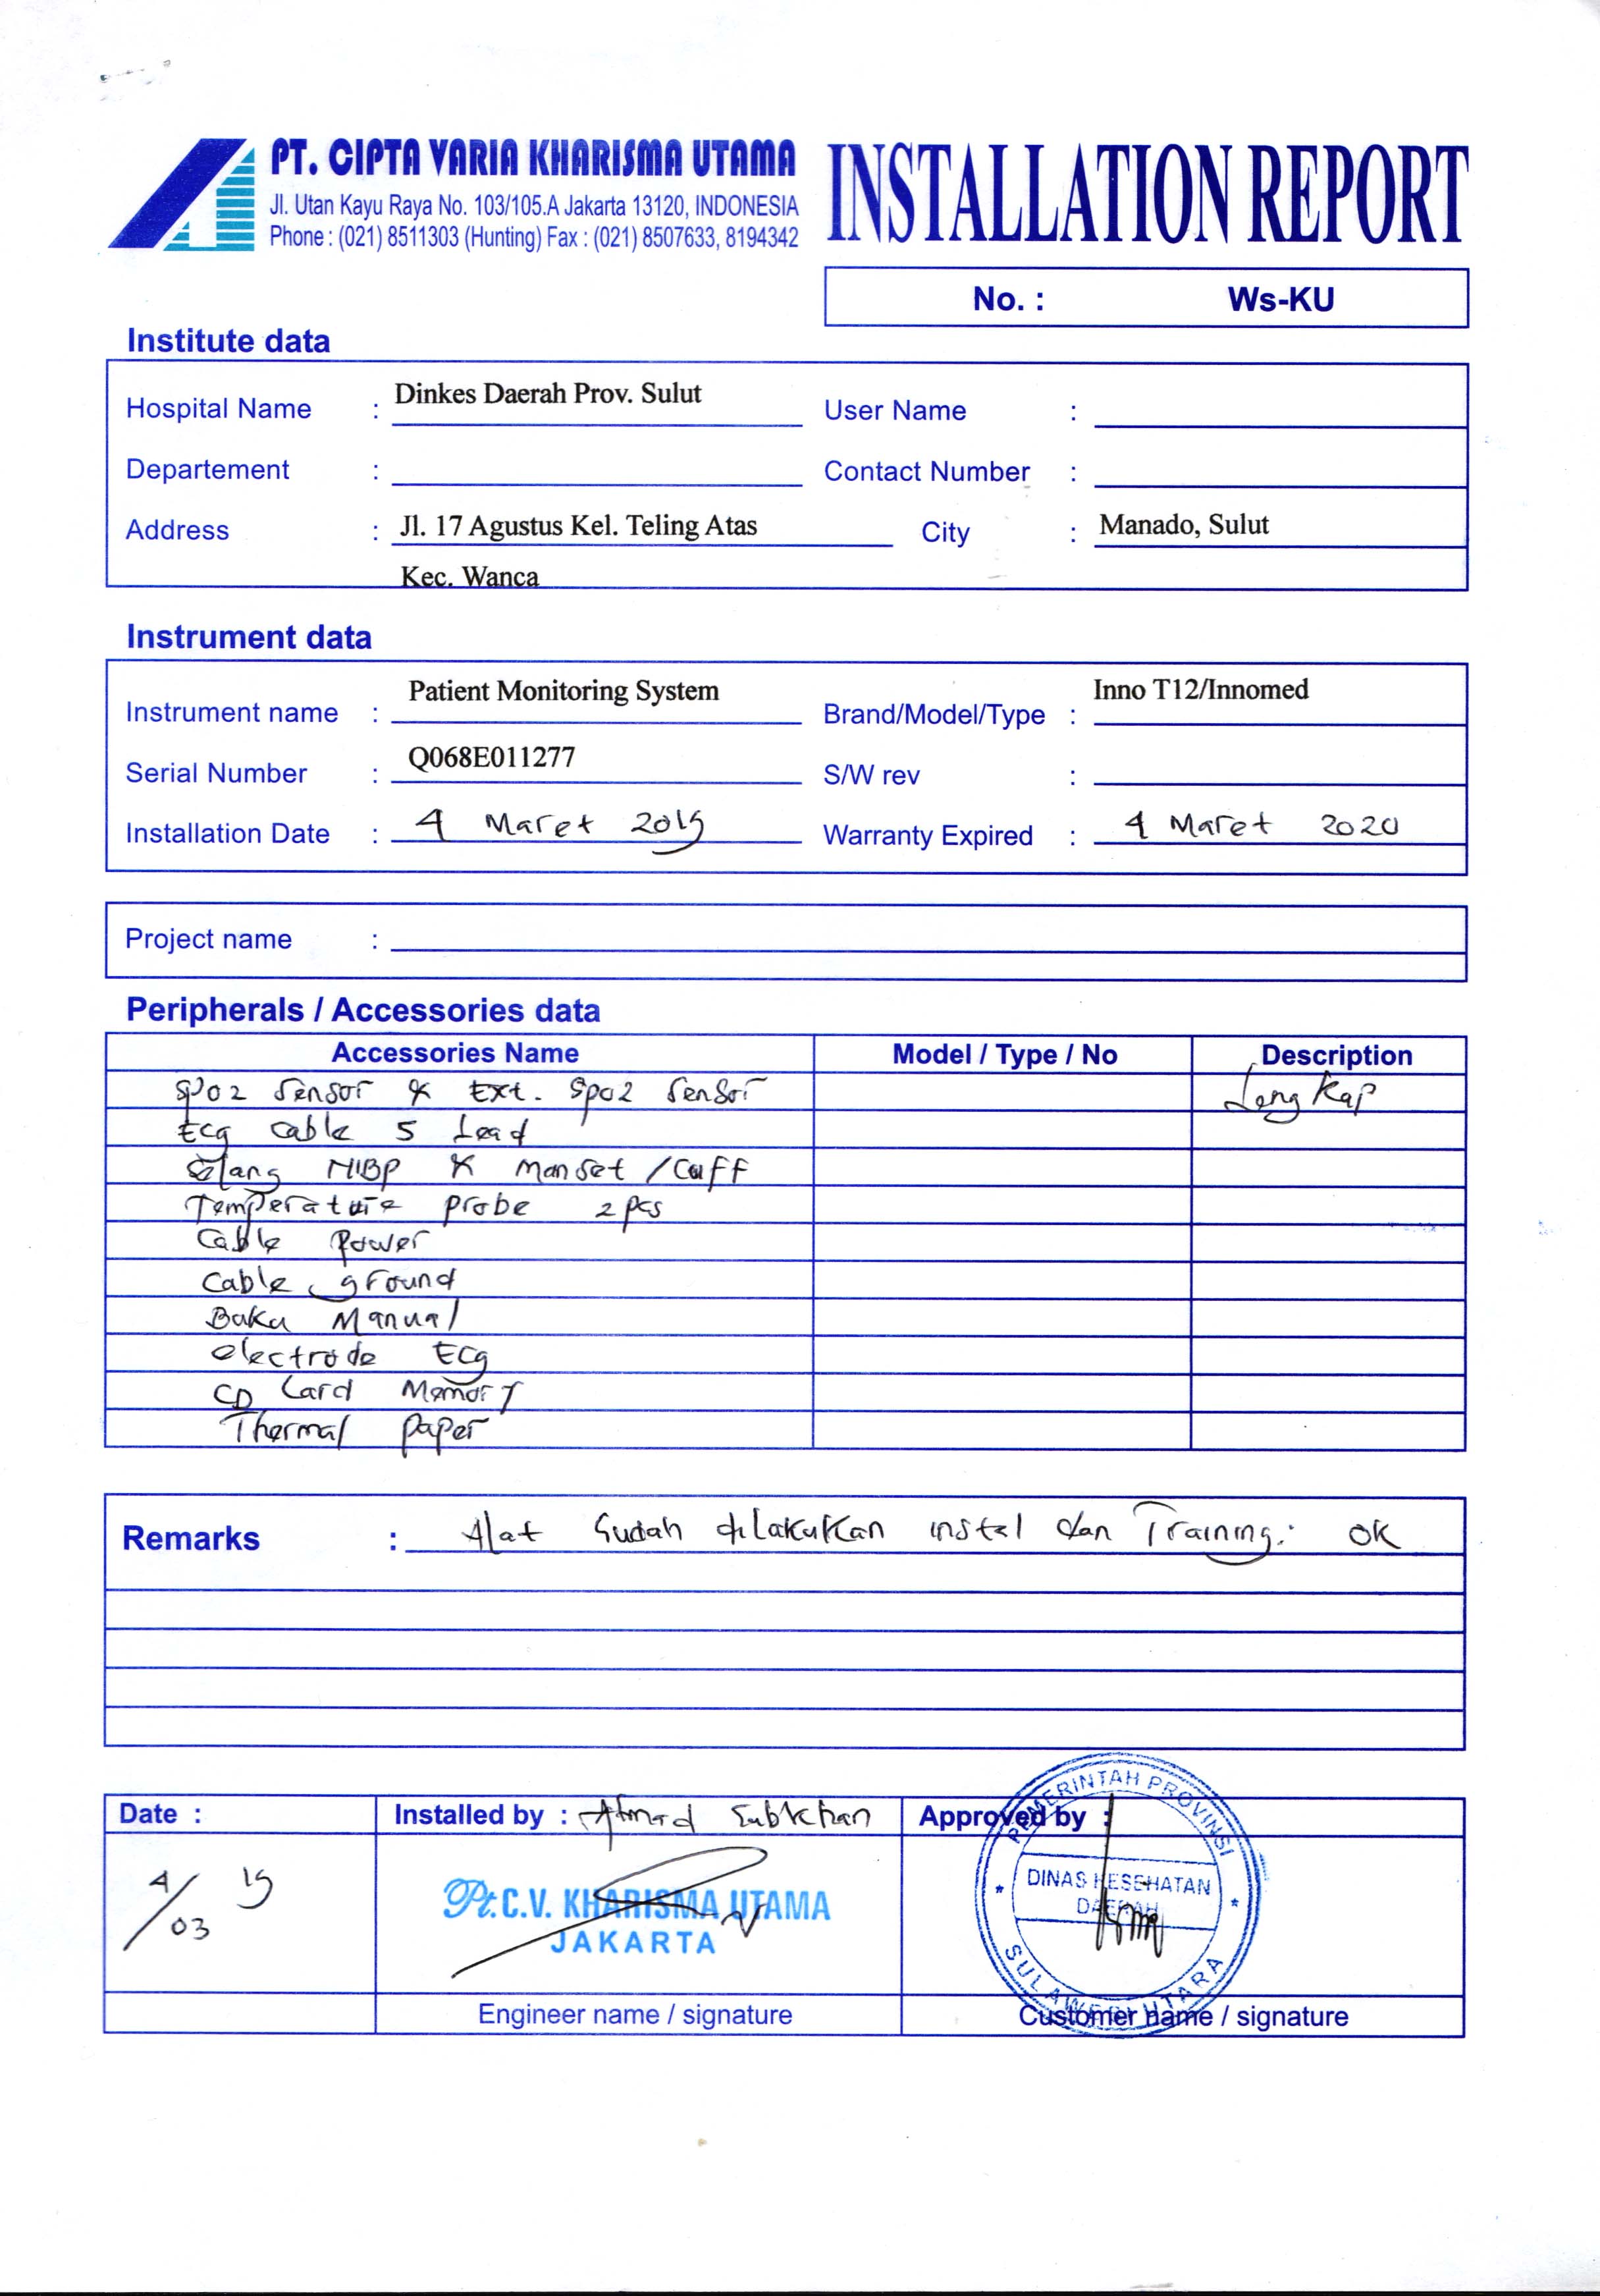 PT. CIPTA VARIA KHARISMA UTAMA
Jl. Utan Kayu Raya No. 103/105.A Jakarta 13120, INDONESIA
Phone : (021) 8511303 (Hunting) Fax : (021) 8507633, 8194342
INSTALLATION REPORT
No. : Ws-KU
Institute data
Hospital Name : Dinkes Daerah Prov. Sulut User Name :
Departement : Contact Number :
Address : Jl. 17 Agustus Kel. Teling Atas City : Manado, Sulut
Kec. Wanca
Instrument data
Instrument name : Patient Monitoring System Brand/Model/Type : Inno T12/Innomed
Serial Number : Q068E011277 S/W rev :
Installation Date : 4 Maret 2019 Warranty Expired : 4 Maret 2020
Project name :
Peripherals / Accessories data
Accessories Name Model / Type / No Description
SPO2 Sensor & Ext. Spo2 Sensor Lengkap
Ecg cable 5 Lead
Selang NIBP & Manset / Cuff
Temperature probe 2 pcs
Cable Power
Cable ground
Buku Manual
electrode Ecg
CD Card Memory
Thermal paper
Remarks : Alat Sudah dilakukan instal dan Training. OK
Date : Installed by : Ahmad Subkhan Approved by :
4/03 19
Pt.C.V. KHARISMA UTAMA
JAKARTA
PEMERINTAH PROVINSI
DINAS KESEHATAN
DAERAH
SULAWESI UTARA
Engineer name / signature Customer name / signature